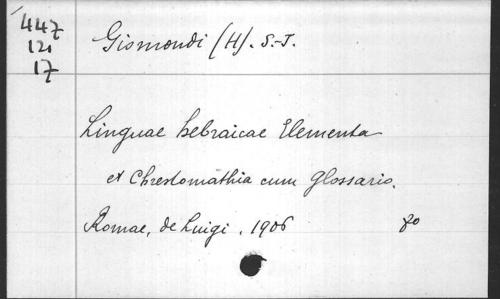 447
121
17
Gismondi (H). S.-J.
Linguae hebraicae Elementa
et Chrestomathia cum glossario.
Romae, de Luigi. 1906